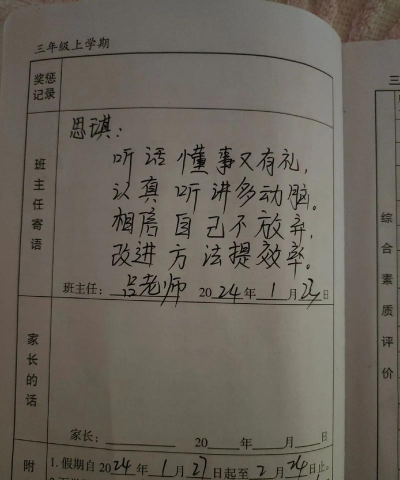 三年级上学期
奖惩
记录
班主任寄语
思琪：
听话懂事又有礼，
认真听讲多动脑。
相信自己不放弃，
改进方法提效率。
班主任：吕老师 2024年1月27日
家长的话
家长： 20 年 月 日
附
1. 假期自2024年1月27日起至2月24日止。
三
综合素质评价